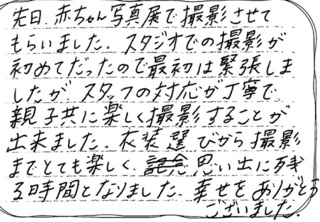 先日、赤ちゃん写真展で撮影させて
もらいました。スタジオでの撮影が
初めてだったので最初は緊張しま
したが、スタッフの対応が丁寧で、
親子共に楽しく撮影することが
出来ました。衣装選びから撮影
までとても楽しく、思い出に残
る時間となりました。幸せをありがとう
ございました。